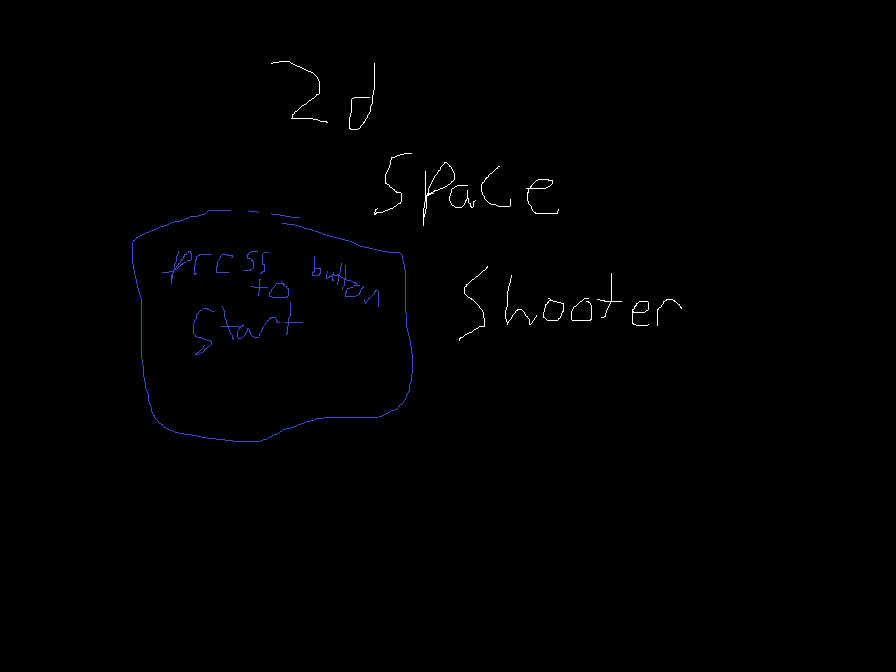 2d
Space
Shooter
press button
to
Start